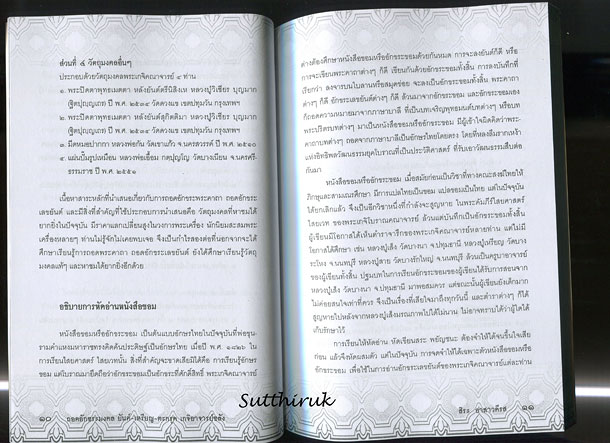 ส่วนที่ ๔ วัตถุมงคลอื่นๆ
ประกอบด้วยวัตถุมงคลพระเกจิคณาจารย์ ๔ ท่าน
๑. พระปิดตาพุทธเมตตา หลังยันต์ตรีนิสิงเห หลวงปู่วิเชียร บุญมาก
(ฐิตปุญฺญเถร) ปี พ.ศ. ๒๕๓๙ วัดดวงแข เขตปทุมวัน กรุงเทพฯ
๒. พระปิดตาพุทธเมตตา หลังยันต์สุกิตติมา หลวงปู่วิเชียร บุญมาก
(ฐิตปุญฺญเถร) ปี พ.ศ. ๒๕๓๙ วัดดวงแข เขตปทุมวัน กรุงเทพฯ
๓. มีดหมอปากกา หลวงพ่อกัน วัดเขาแก้ว จ.นครสวรรค์ ปี พ.ศ. ๒๕๑๐
๔. แผ่นปั๊มรูปเหมือน หลวงพ่อเอื้อม กตปุญฺโญ วัดบางเนียน จ.นครศรี-
ธรรมราช ปี พ.ศ. ๒๕๕๑
เนื้อหาสาระหลักที่นำเสนอเกี่ยวกับการถอดอักขระพระคาถา ถอดอักขระ
เลขยันต์ และมีสิ่งที่สำคัญที่ใช้ประกอบการนำเสนอคือ วัตถุมงคลที่หาชมได้
ยากยิ่งในปัจจุบัน มีราคาแลกเปลี่ยนสูงในวงการพระเครื่อง นักนิยมสะสมพระ
เครื่องหลายๆ ท่านไม่รู้จักไม่เคยพบเจอ จึงเป็นกำไรสองต่อที่นอกจากจะได้
ศึกษาเรียนรู้การถอดพระคาถา ถอดอักขระเลขยันต์ ยังได้ศึกษาเรียนรู้วัตถุ
มงคลแท้ๆ และหาชมได้ยากยิ่งอีกด้วย
อธิบายการหัดอ่านหนังสือขอม
หนังสือขอมหรืออักขระขอม เป็นต้นแบบอักษรไทยในปัจจุบันที่พ่อขุน-
รามคำแหงมหาราชทรงคิดค้นประดิษฐ์เป็นอักษรไทย เมื่อปี พ.ศ. ๑๘๒๖ ใน
การเรียนไสยศาสตร์ ไสยเวทนั้น สิ่งที่สำคัญจะขาดเสียมิได้คือ การเรียนรู้อักขระ
ขอม แต่โบราณมายึดถือว่าอักขระขอมเป็นอักขระที่ศักดิ์สิทธิ์ พระเกจิคณาจารย์
๑๐ ถอดอักขระมงคล ยันต์-เหรียญ-ตะกรุด เกจิอาจารย์ขลัง
ต่างต้องศึกษาหนังสือขอมหรืออักขระขอมด้วยกันหมด การจะลงยันต์ก็ดี หรือ
การจะเขียนพระคาถาต่างๆ ก็ดี เขียนกันด้วยอักขระขอมทั้งสิ้น การลงบันทึกที่
เรียกว่า ลงจารบนใบลานหรือสมุดข่อย จะลงเป็นอักขระขอมทั้งสิ้น พระคาถา
ต่างๆ ก็ดี อักขระเลขยันต์ต่างๆ ก็ดี ล้วนมาจากอักขระขอม และอักขระขอมเอง
ก็ถอดความหมายมาจากภาษาบาลี ที่เป็นบทเจริญพุทธมนต์บทต่างๆ หรือบท
พระปริตรบทต่างๆ มาเป็นหนังสือขอมหรืออักขระขอม มีผู้เข้าใจผิดคิดว่าพระ-
คาถาบทต่างๆ ถอดจากภาษาบาลีเป็นอักษรไทยโดยตรง โดยที่หลงลืมรากเหง้า
แห่งอิทธิพลวัฒนธรรมยุคโบราณที่เป็นประวัติศาสตร์ ที่รับเอาวัฒนธรรมสืบต่อ
กันมา
หนังสือขอมหรืออักขระขอม เมื่อสมัยก่อนเป็นวิชาที่ทางคณะสงฆ์ไทยให้
ภิกษุและสามเณรศึกษา มีการแปลไทยเป็นขอม แปลขอมเป็นไทย แต่ในปัจจุบัน
ได้ยกเลิกแล้ว จึงเป็นอีกวิชาหนึ่งที่กำลังจะสูญหาย ในพระคัมภีร์ไสยศาสตร์
ไสยเวท ของพระเกจิโบราณคณาจารย์ ล้วนแต่บันทึกเป็นอักขระขอมทั้งสิ้น
ผู้เขียนมีโอกาสได้เห็นตำราจารึกของพระเกจิคณาจารย์หลายท่าน แต่ไม่มี
โอกาสได้ศึกษา เช่น หลวงปู่เส็ง วัดบางนา จ.ปทุมธานี หลวงปู่เหรียญ วัดบาง
ระโหง จ.นนทบุรี หลวงปู่สาย วัดบางรักใหญ่ จ.นนทบุรี ล้วนเป็นครูบาอาจารย์
ของผู้เขียนทั้งสิ้น ปฐมบทในการเรียนอักขระขอมของผู้เขียนได้รับการสอนจาก
หลวงปู่เส็ง วัดบางนา จ.ปทุมธานี มาพอสมควร แต่ขณะนั้นผู้เขียนยังเด็กมาก
ไม่ค่อยสนใจเท่าที่ควร จึงเป็นเรื่องที่เสียใจมาถึงทุกวันนี้ และตำราต่างๆ ก็ได้
สูญไปหลังจากหลวงปู่เส็งมรณภาพไปได้ไม่นาน ไม่อาจทราบได้ว่าผู้ใดได้
เก็บรักษาไว้
การเรียนให้หัดอ่าน หัดเขียนสระ พยัญชนะ ต้องจำให้ได้จนขึ้นใจเสีย
ก่อน แล้วจึงหัดผสมคำ แต่ในปัจจุบัน การจดจำให้ได้เฉพาะตัวหนังสือขอมหรือ
อักขระขอม เพื่อใช้ในการอ่านอักขระเลขยันต์ของพระเกจิคณาจารย์แต่ละท่าน
๑๑
Sutthiruk